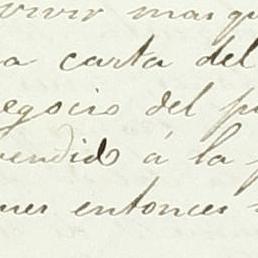 vivir mas qu
a carta del
egocio del p
vendido á la p
nes entonces